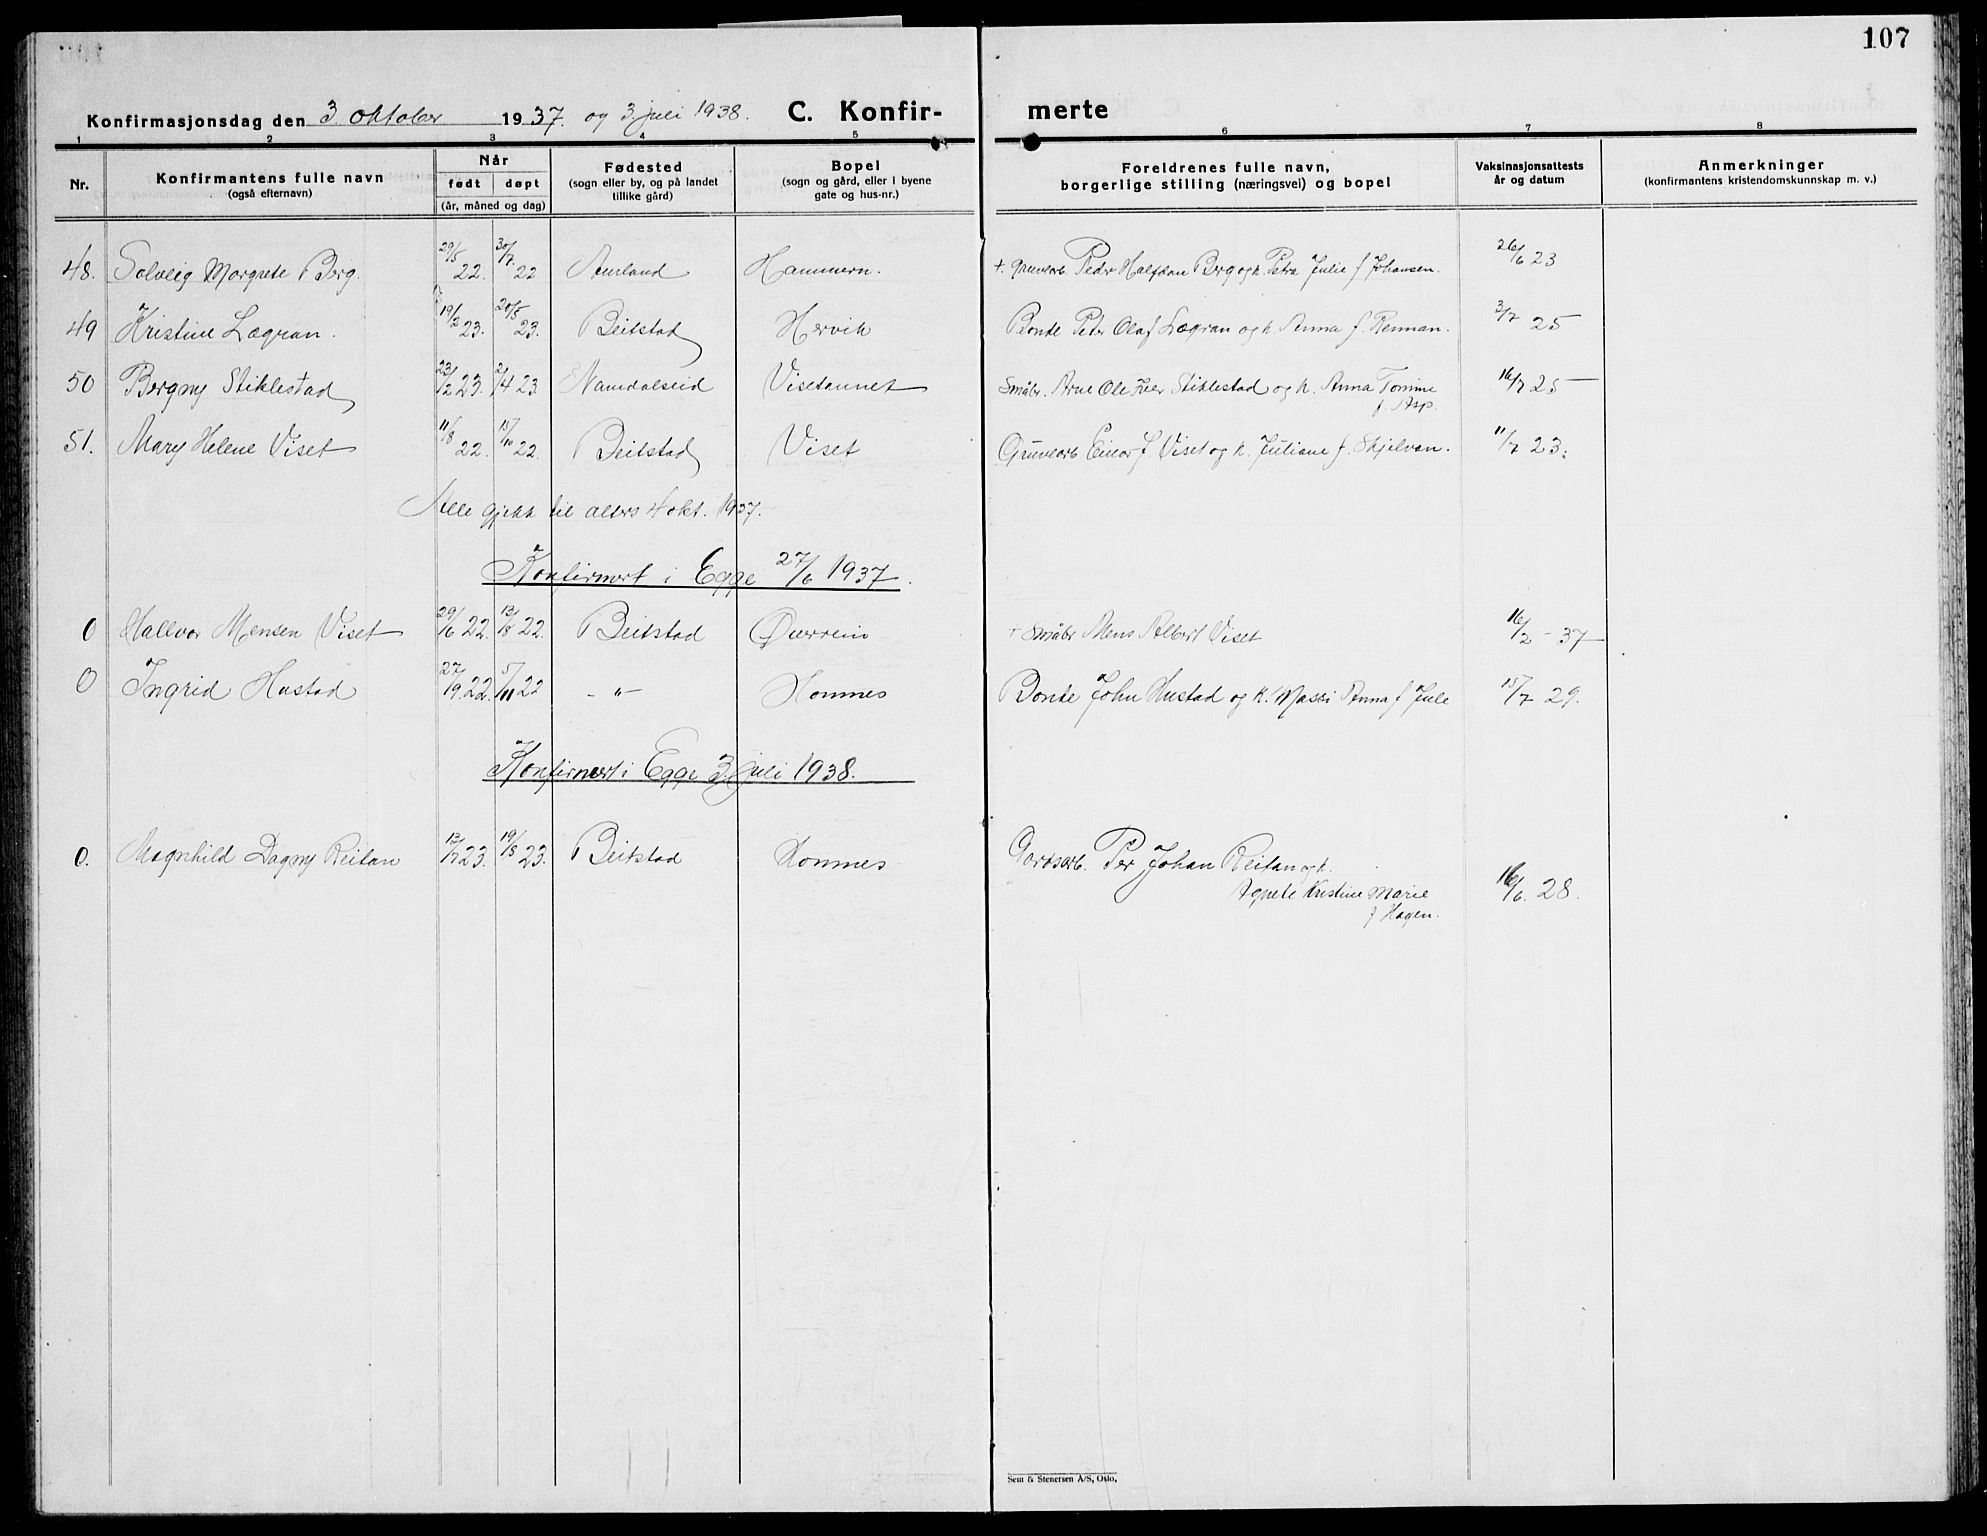 107
Konfirmasjonsdag den 3. oktober 1937. og 3. juli 1938. C. Konfir-merte
1 2 3 4 5 6 7 8
Nr. Konfirmantens fulle navn (også efternavn) Når født døpt (år, måned og dag) Fødested (sogn eller by, og på landet tillike gård) Bopel (sogn og gård, eller i byene gate og hus-nr.) Foreldrenes fulle navn, borgerlige stilling (næringsvei) og bopel Vaksinasjonsattests år og datum Anmerkninger (konfirmantens kristendomskunnskap m. v.)
48. Solveig Margrete Berg. 29/5 22. 30/7. 22 Aurland Hammern. +. gruvearb. Peder Halfdan Berg og k. Petra Julie f. Johansen. 26/6 23
49 Kristine Lægran. 19/2 23. 20/5 23. Beitstad Hervik Bonde Peter Olaf Lægran og k. Anna f. Rennan. 3/7 25
50 Bergny Stiklestad 23/2 23. 2/4 23 Namdalseid Visetaunet Småbr. Arne Ole Stiklestad og k. Anna Tomine
f. Asp. 16/7 25
51. Mary Helene Viset 11/8 22. 15/10 22. Beitstad Viset Gruvearb Einar J. Viset og k. Juliane f. Skjelvan. 11/7 23.
Alle gjekk til alters 4 okt. 1937.
Konfirmert i Egge 27/6 1937.
0 Hallvor Mensen Viset 29/6 22. 13/8 22. Beitstad Øverrein + Småbr Mens Albert Viset 16/2 - 37
0 Ingrid Hustad 27/9 22. 5/11 22 - " - Hommes Bonde John Hustad og k. Massi Anna f Jule 15/7 29.
Konfirmert i Egge 3. juli 1938.
0. Magnhild Dagny Reitan 13/7 23. 19/8 23. Beitstad Hommes Gardsarb. Per Johan Reitan og k.
Agnete Kristine Marie
f Hagen. 16/6. 28.
Sem & Stenersen A/S, Oslo.